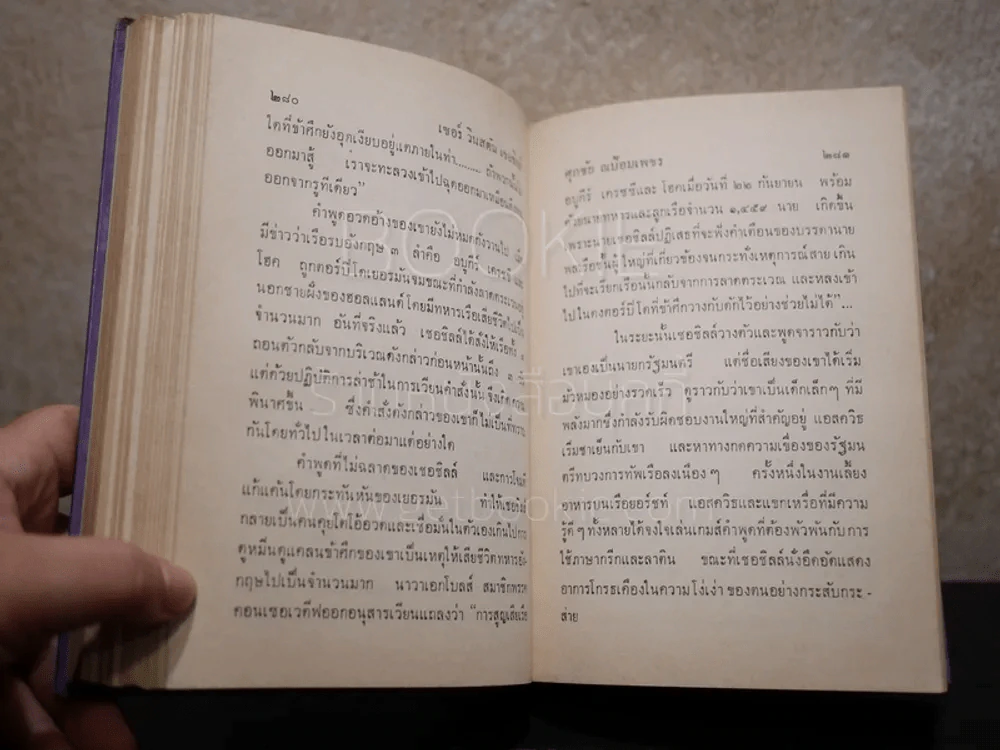 ๒๘๐
เซอร์ วินสตัน
ใดที่ข้าศึกยังอุกเงียบอยู่แต่ภายในท่า........ ถ้าพวกนั้นไม่
ออกมาสู้ เราจะทะลวงเข้าไปฉุดออกมาเหมือนดึงหนู
ออกจากรูทีเดียว”
คำพูดอวดอ้างของเขายังไม่หมดกังวานไป
มีข่าวว่าเรือรบอังกฤษ ๓ ลำคือ อบูกีร์ เครซซี่ และ
โฮค ถูกตอร์ปิโดเยอรมันจมขณะที่กำลังลาดตระเวนอยู่
นอกชายฝั่งของฮอลแลนด์ โดยมีทหารเรือเสียชีวิตไปเป็น
จำนวนมาก อันที่จริงแล้ว เชอชิลล์ได้สั่งให้เรือทั้ง ๓
ถอนตัวกลับจากบริเวณดังกล่าวก่อนหน้านั้นถึง ๓ วัน
แต่ด้วยปฏิบัติการล่าช้าในการเวียนคำสั่งนั้น จึงเกิดความ
พินาศขึ้น ซึ่งคำสั่งดังกล่าวของเขาก็ไม่เป็นที่ทราบ
กันโดยทั่วไปในเวลาต่อมาแต่อย่างใด
คำพูดที่ไม่ฉลาดของเชอชิลล์ และการโจมตี
แก้แค้นโดยกระทันหันของเยอรมัน ทำให้เชอชิลล์
กลายเป็นคนคุยโตโอ้อวดและเชื่อมั่นในตัวเองเกินไปการ
ดูหมิ่นดูแคลนข้าศึกของเขาเป็นเหตุให้เสียชีวิตทหารอัง-
กฤษไปเป็นจำนวนมาก นาวาเอกโบลส์ สมาชิกพรรค
คอนเซอเวตีฟออกอนุสารเวียนแถลงว่า “การสูญเสียเรือ
ศุภชัย ณป้อมเพชร
๒๘๑
อบูกีร์ เครซซี่และ โฮคเมื่อวันที่ ๒๒ กันยายน พร้อม
ด้วยนายทหารและลูกเรือจำนวน ๑,๔๕๙ นาย เกิดขึ้น
เพราะนายเชอชิลล์ปฏิเสธที่จะฟังคำเตือนของบรรดานาย
พลเรือชั้นผู้ใหญ่ที่เกี่ยวข้องจนกระทั่งเหตุการณ์สาย เกิน
ไปที่จะเรียกเรือนั้นกลับจากการลาดตระเวณ และหลงเข้า
ไปในดงตอร์ปิโดที่ข้าศึกวางกับดักไว้อย่างช่วยไม่ได้”...
ในระยะนั้นเชอชิลล์วางตัวและพูดจาราวกับว่า
เขาเองเป็นนายกรัฐมนตรี แต่ชื่อเสียงของเขาได้เริ่ม
มัวหมองอย่างรวดเร็ว ดูราวกับว่าเขาเป็นเด็กเล็กๆ ที่มี
พลังมากซึ่งกำลังรับผิดชอบงานใหญ่ที่สำคัญอยู่ แอสควิธ
เริ่มชาเย็นกับเขา และหาทางกดความเขื่องของรัฐมน
ตรีทบวงการทัพเรือลงเนืองๆ ครั้งหนึ่งในงานเลี้ยง
อาหารบนเรือยอร์ชท์ แอสควิธและแขกเหรื่อที่มีความ
รู้ดีๆ ทั้งหลายได้จงใจเล่นเกมส์คำพูดที่ต้องพัวพันกับการ
ใช้ภาษากรีกและลาติน ขณะที่เชอชิลล์นั่งอึดอัดแสดง
อาการโกรธเคืองในความโง่เง่า ของตนอย่างกระสับกระ -
ส่าย